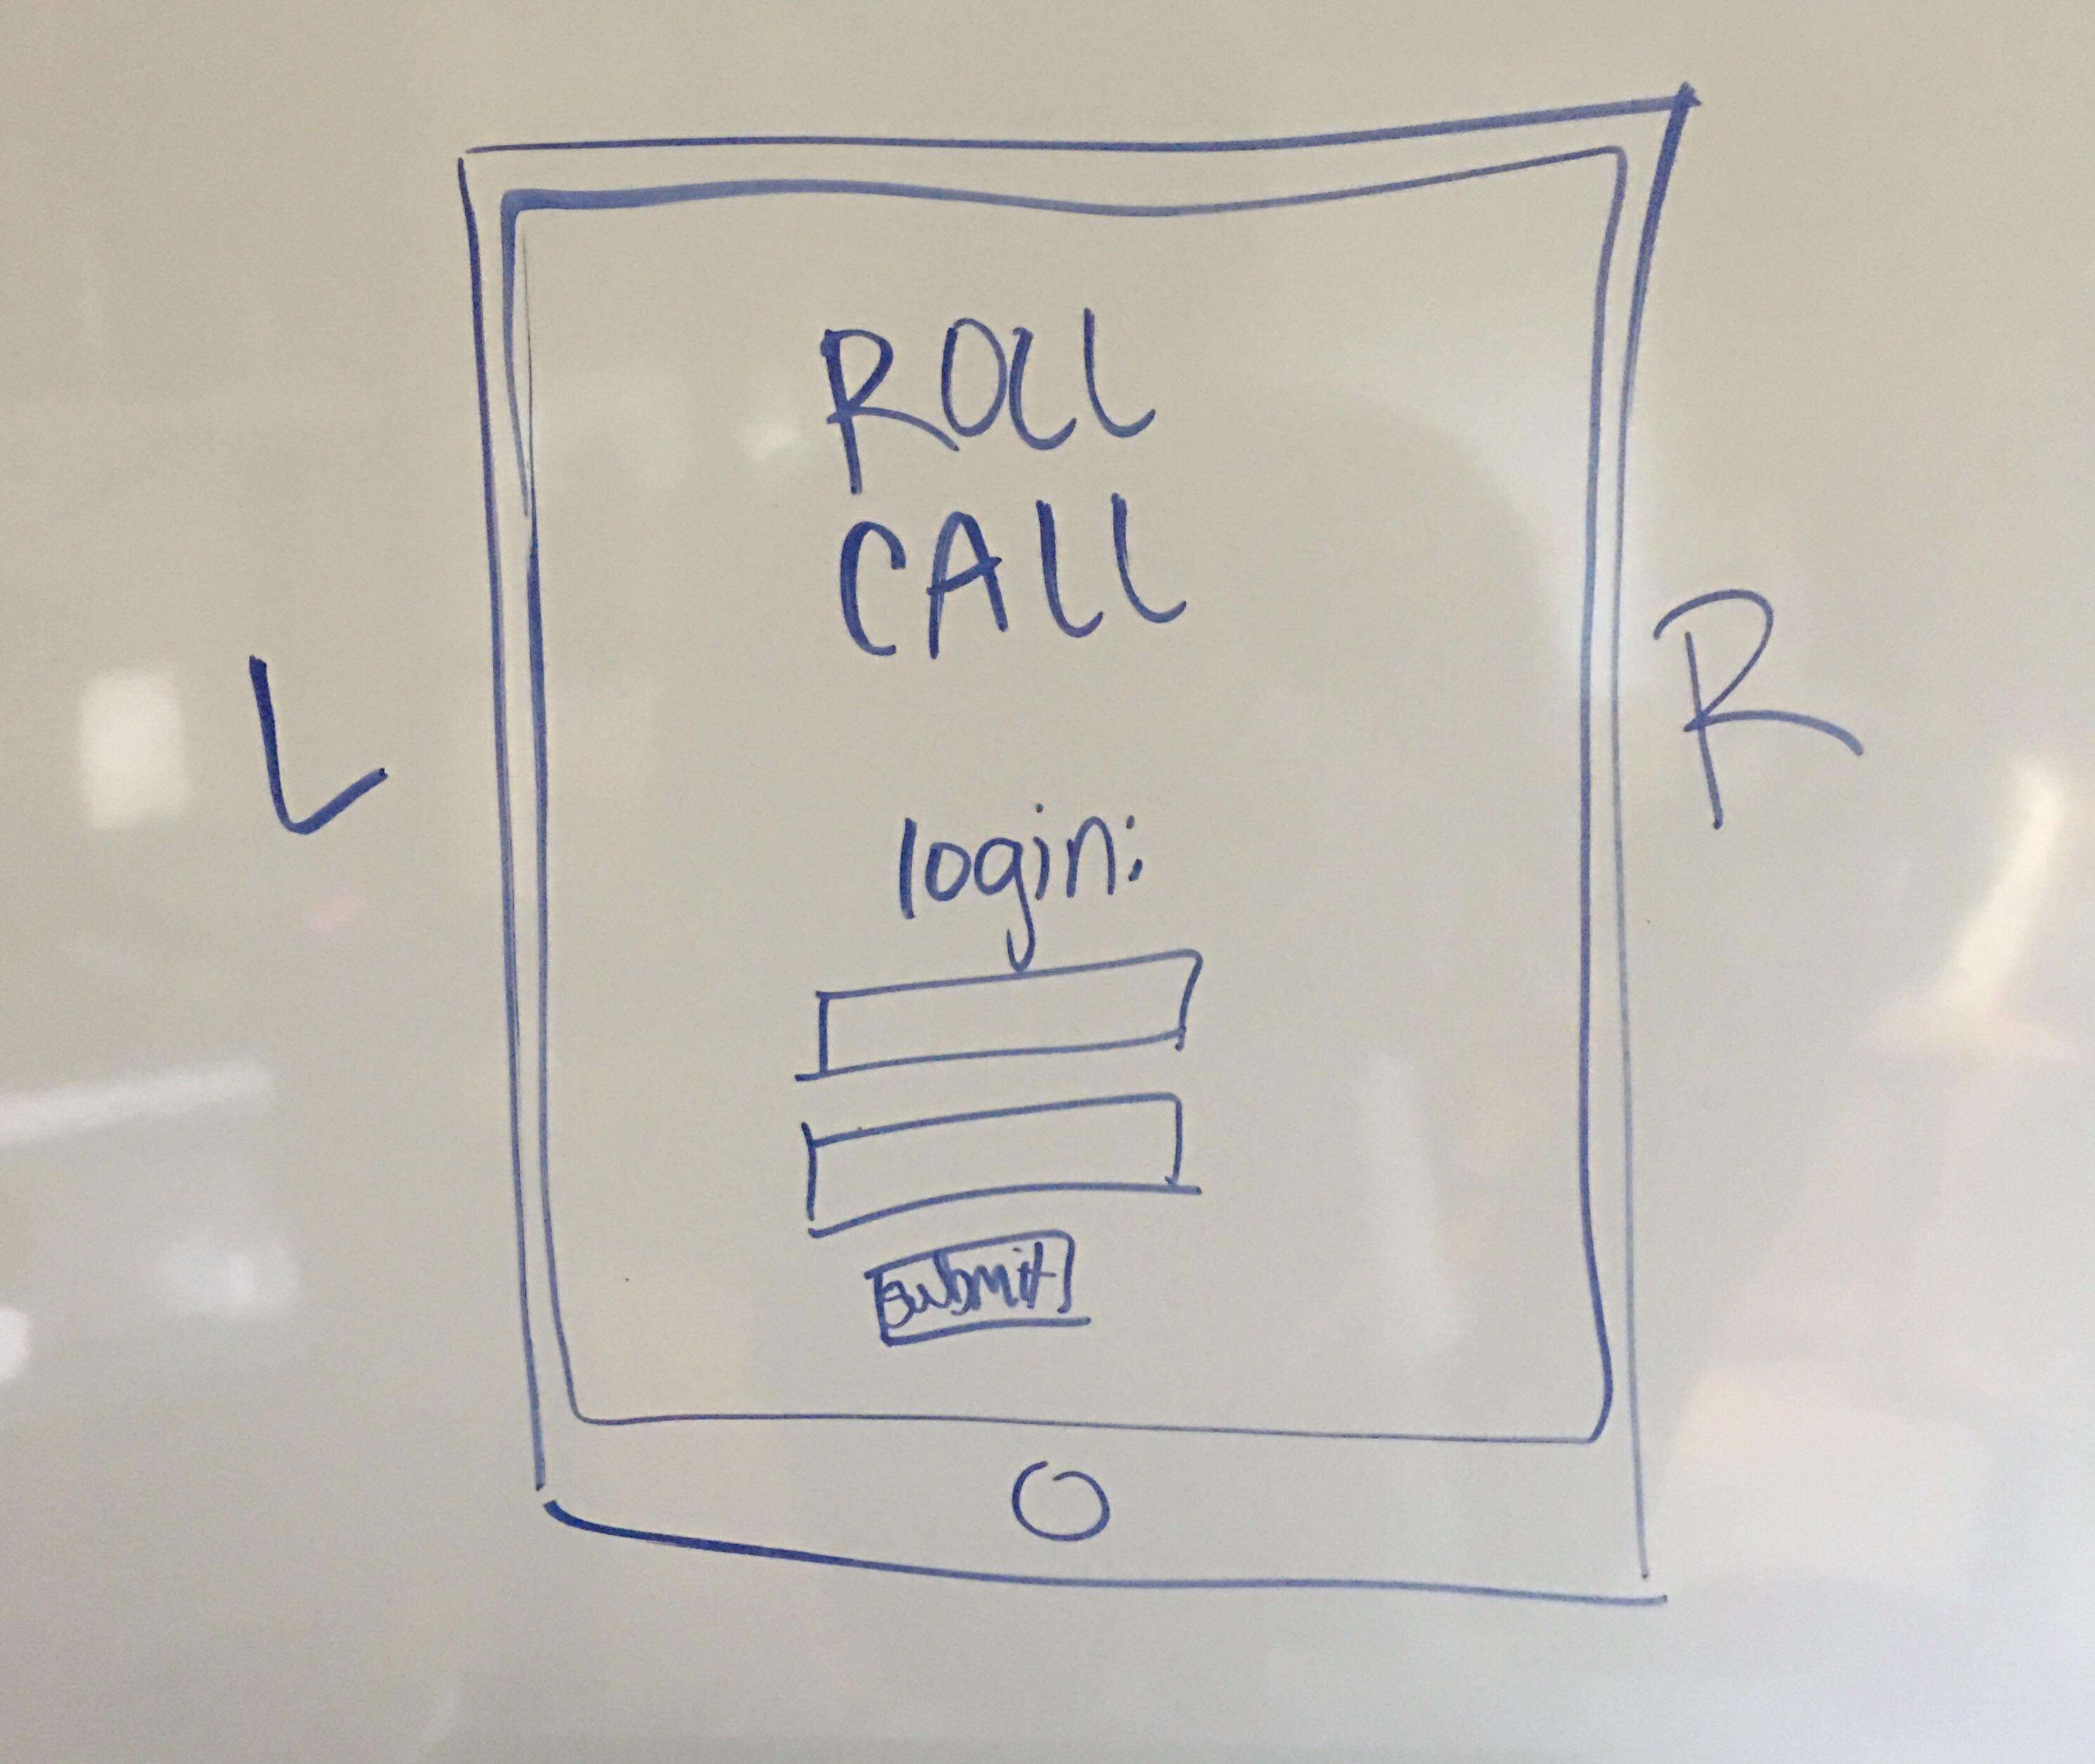 ROLL
CALL
L
R
login:
submit